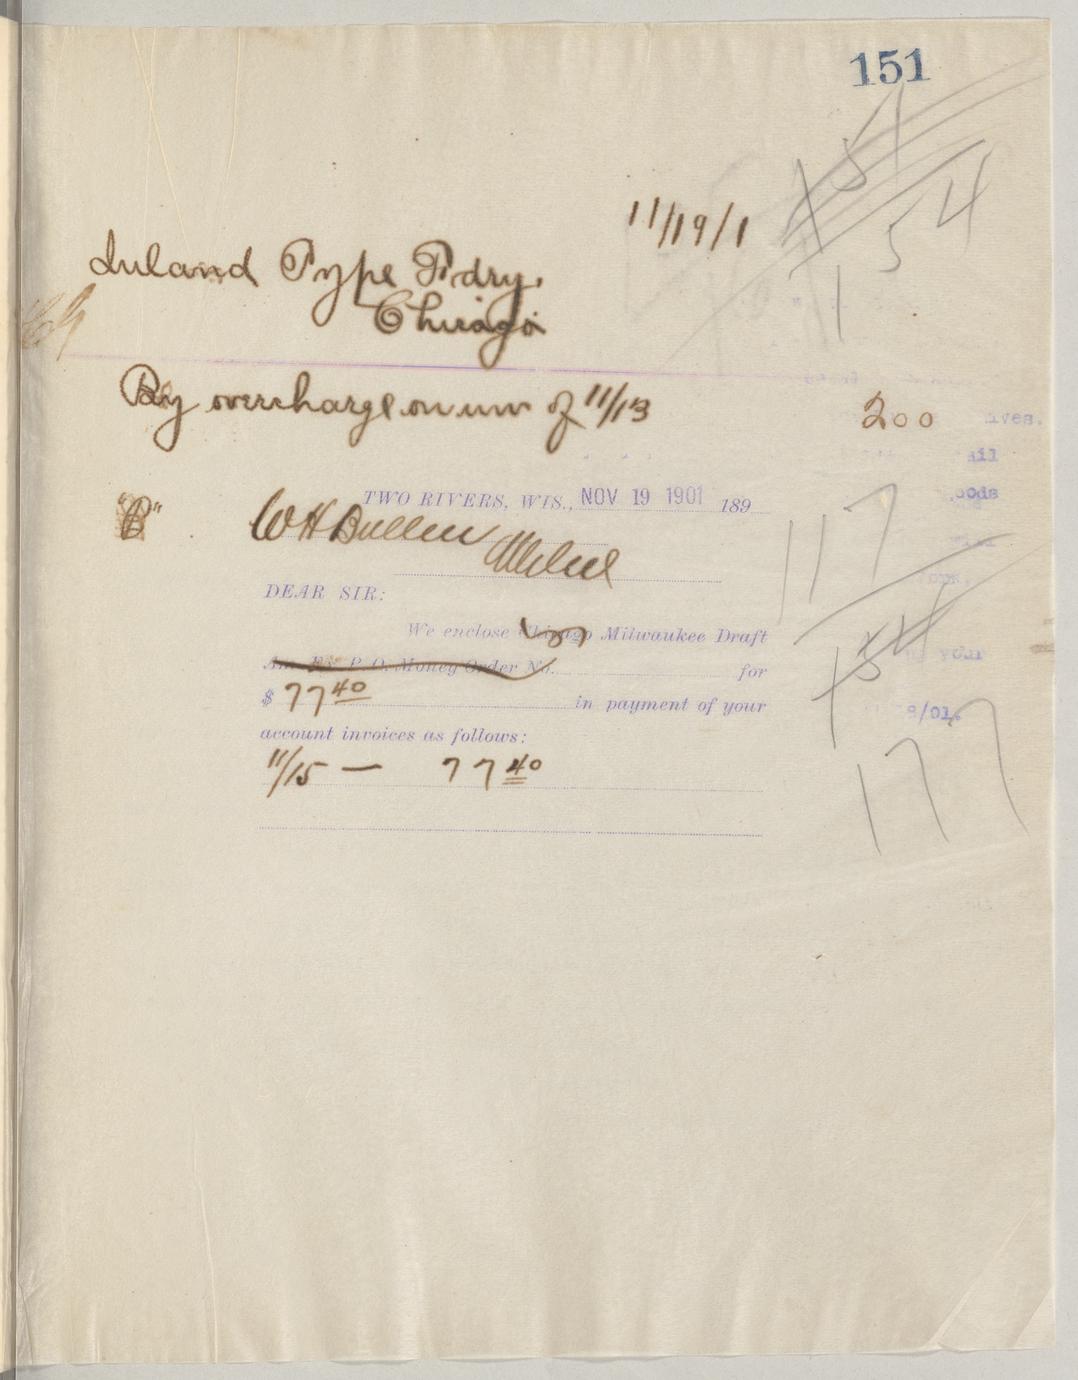 151
11/19/1
Inland Type Fdry.
Chicago
By overcharge on inv of 11/13 200
154
1 5 4
TWO RIVERS, WIS., NOV 19 1901 189
"B" W H Bullen
DEAR SIR:
We enclose Chicago Milwaukee Draft
Am. Ex. P. O. Money Order No. for
$ 77 40 in payment of your
account invoices as follows:
11/15 — 77 40
117
154
177
ives.
ail
oods
your
8/01.